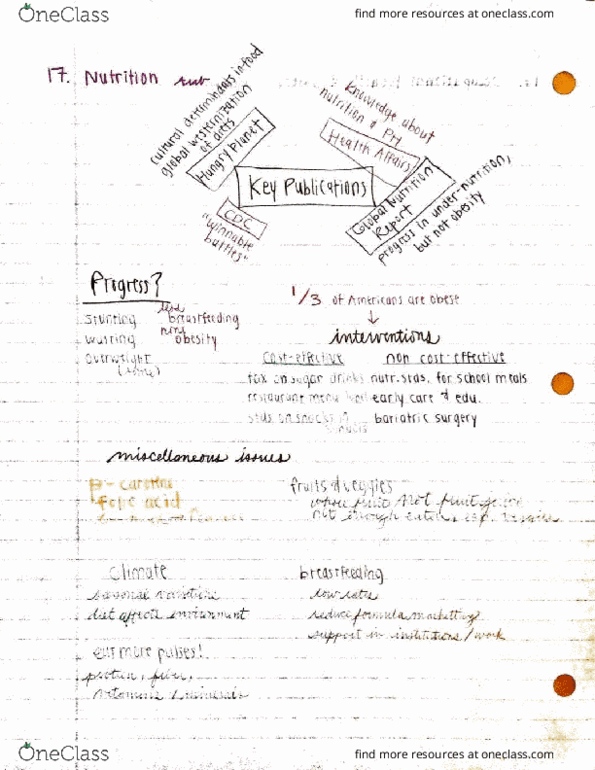 OneClass
find more resources at oneclass.com
17. Nutrition
cultural determinants in food
global westernization
of diets
Hungry Planet
Knowledge about
nutrition & PH
Health Affairs
Key Publications
CDC
"winnable
battles"
Global Nutrition
Report
progress in under-nutrition,
but not obesity
Progress?
stunting
wasting
overweight
less
breastfeeding
more
obesity
1/3 of Americans are obese
↓
interventions
cost-effective non cost-effective
tax on sugar drinks nutr. stds. for school meals
restaurant menu early care & edu.
stds on snacks bariatric surgery
miscellaneous issues
B-carotene
folic acid
fruits & veggies
whole fruit not fruit juice
not enough eaten, esp.
climate
seasonal
diet affects environment
eat more pulses!
protein, fiber,
vitamins / minerals
breastfeeding
low rates
reduce formula marketing
support in institutions/work
OneClass
find more resources at oneclass.com